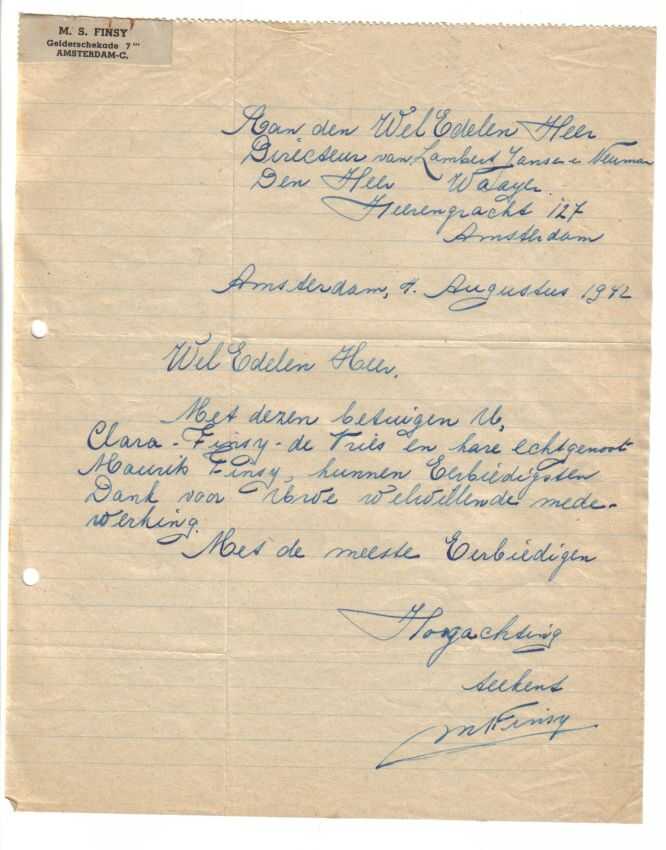 M. S. FINSY
Gelderschekade 7 '''
AMSTERDAM-C.
Aan den Wel Edelen Heer
Directeur van Lambert Janse
Den Heer Waayer.
Heerengracht 127
Amsterdam
Amsterdam, Augustus 1942
Wel Edelen Heer,
Met dezen betuigen U,
Clara-Finsy-de Vries en hare echtgenoot
Maurik Finsy, hunnen Eerbiedigsten
Dank voor Uwe welwillende mede-
werking.
Met de meeste Eerbiedigen
Hoogachting
teekent
M Finsy